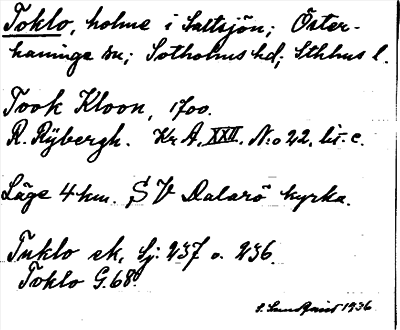 Toklo, holme i Saltsjön; Öster-
haninge sn; Sotholms hd; Sthlms l.
Took Kloon, 1700.
R. Rÿbergh. Kr. A. XXII. N:o 22, lit. c.
Läge 4 km. SV Dalarö kyrka.
Tuklo ek, Sj: 237 o. 236.
Toklo G. 68.
S. Lundqvist 1936